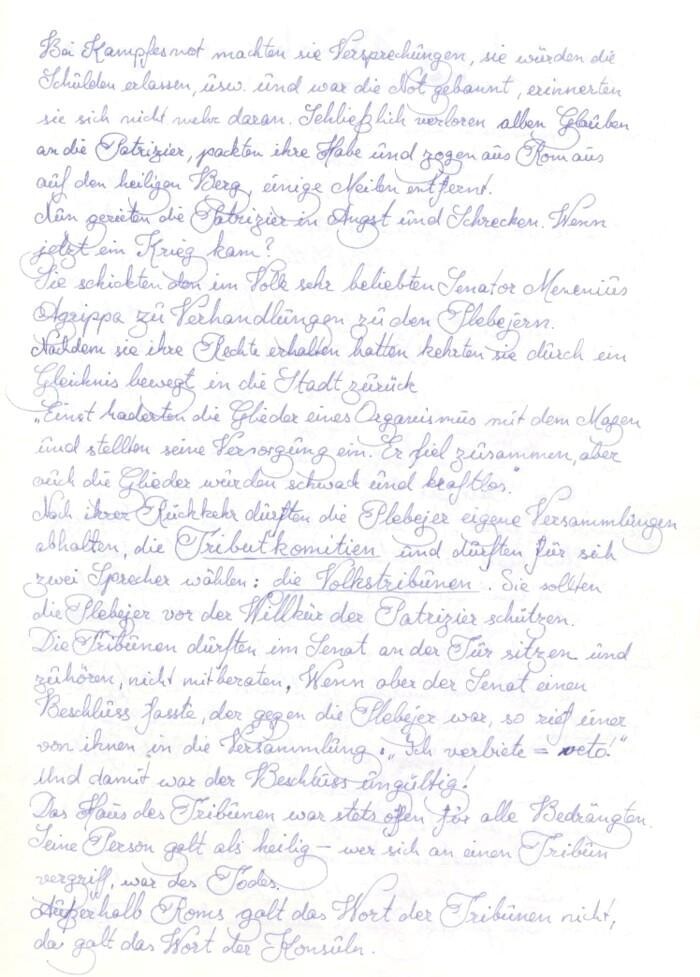 Bei Kampfesnot machten sie Versprechungen, sie würden die
Schulden erlassen, usw. und war die Not gebannt, erinnerten
sie sich nicht mehr daran. Schließlich verloren alben Glauben
an die Patrizier, packten ihre Habe und zogen aus Rom aus
auf den heiligen Berg, einige Meilen entfernt.
Nun gerieten die Patrizier in Angst und Schrecken. Wenn
jetzt ein Krieg kam?
Sie schickten den im Volk sehr beliebten Senator Menenius
Agrippa zu Verhandlungen zu den Plebejern.
Nachdem sie ihre Rechte erhalten hatten kehrten sie durch ein
Gleichnis bewegt in die Stadt zurück
„Einst haderten die Glieder eines Organismus mit dem Magen
und stellten seine Versorgung ein. Er fiel zusammen, aber
auch die Glieder wurden schwach und kraftlos."
Nach ihrer Rückkehr durften die Plebejer eigene Versammlungen
abhalten, die Tributkomitien und durften für sich
zwei Sprecher wählen: die Volkstribunen. Sie sollten
die Plebejer vor der Willkür der Patrizier schützen.
Die Tribunen durften im Senat an der Tür sitzen und
zuhören, nicht mitberaten, Wenn aber der Senat einen
Beschluss fasste, der gegen die Plebejer war, so rief einer
von ihnen in die Versammlung: „Ich verbiete = veto!"
Und damit war der Beschluss ungültig!
Das Haus des Tribunen war stets offen für alle Bedrängten.
Seine Person galt als heilig – wer sich an einen Tribun
vergriff, war des Todes.
Außerhalb Roms galt das Wort der Tribunen nicht,
da galt das Wort der Konsuln.